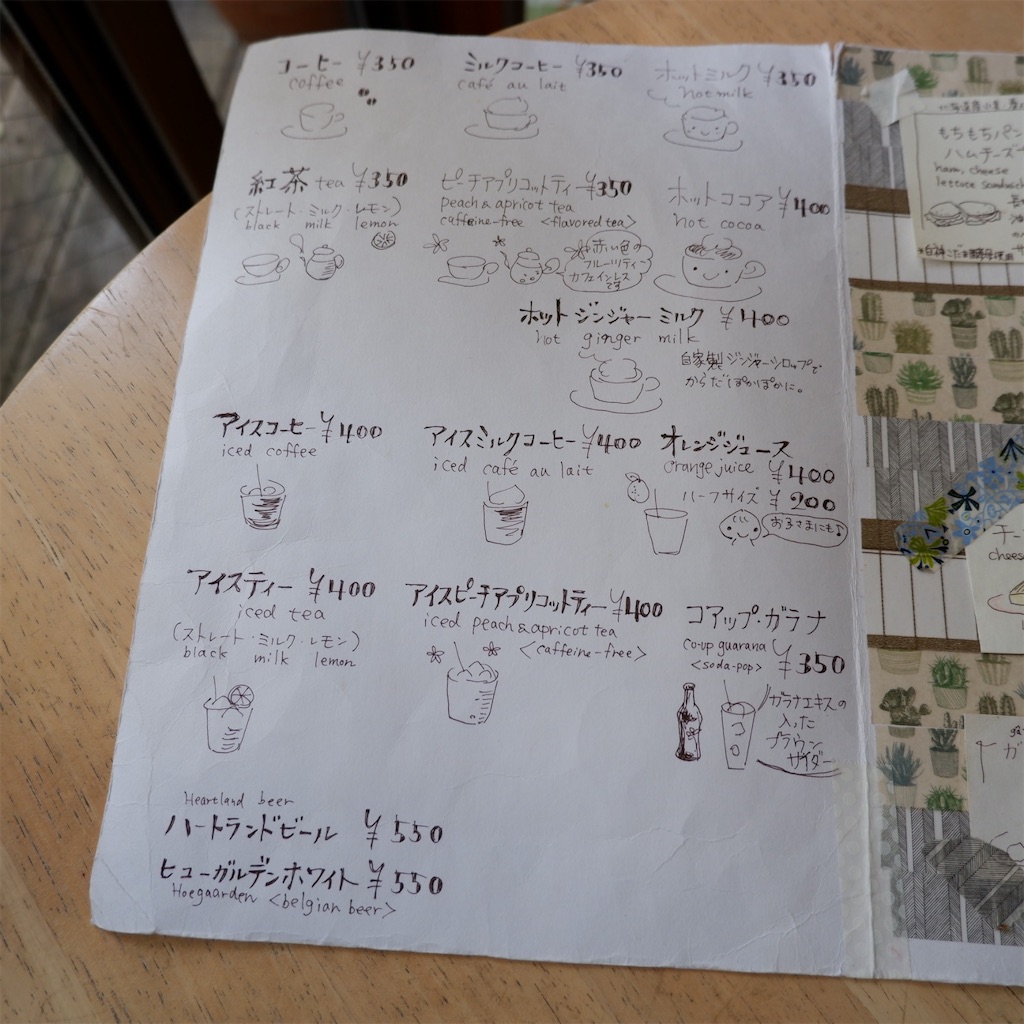 コーヒー ¥350
coffee
ミルクコーヒー ¥350
café au lait
ホットミルク ¥350
hot milk
紅茶 tea ¥350
(ストレート・ミルク・レモン)
black milk lemon
ピーチアプリコットティ ¥350
peach & apricot tea
caffeine-free <flavored tea>
赤い色の
フルーツティ
カフェインレス
です
ホットココア ¥400
hot cocoa
ホットジンジャーミルク ¥400
hot ginger milk
自家製ジンジャーシロップで
からだぽかぽかに。
アイスコーヒー ¥400
iced coffee
アイスミルクコーヒー ¥400
iced café au lait
オレンジジュース
orange juice ¥400
ハーフサイズ ¥200
お子さまにも♪
アイスティー ¥400
iced tea
(ストレート・ミルク・レモン)
black milk lemon
アイスピーチアプリコットティー ¥400
iced peach & apricot tea
<caffeine-free>
コアップ・ガラナ
co-up guarana
<soda-pop> ¥350
ガラナエキスの
入った
ブラウン
サイダー
Heartland beer
ハートランドビール ¥550
ヒューガルデンホワイト ¥550
Hoegaarden <belgian beer>
もちもちパン
ハムチーズ
ham, cheese
lettuce sandwich
*白神こだま酵母使用
チー
cheese
ガ